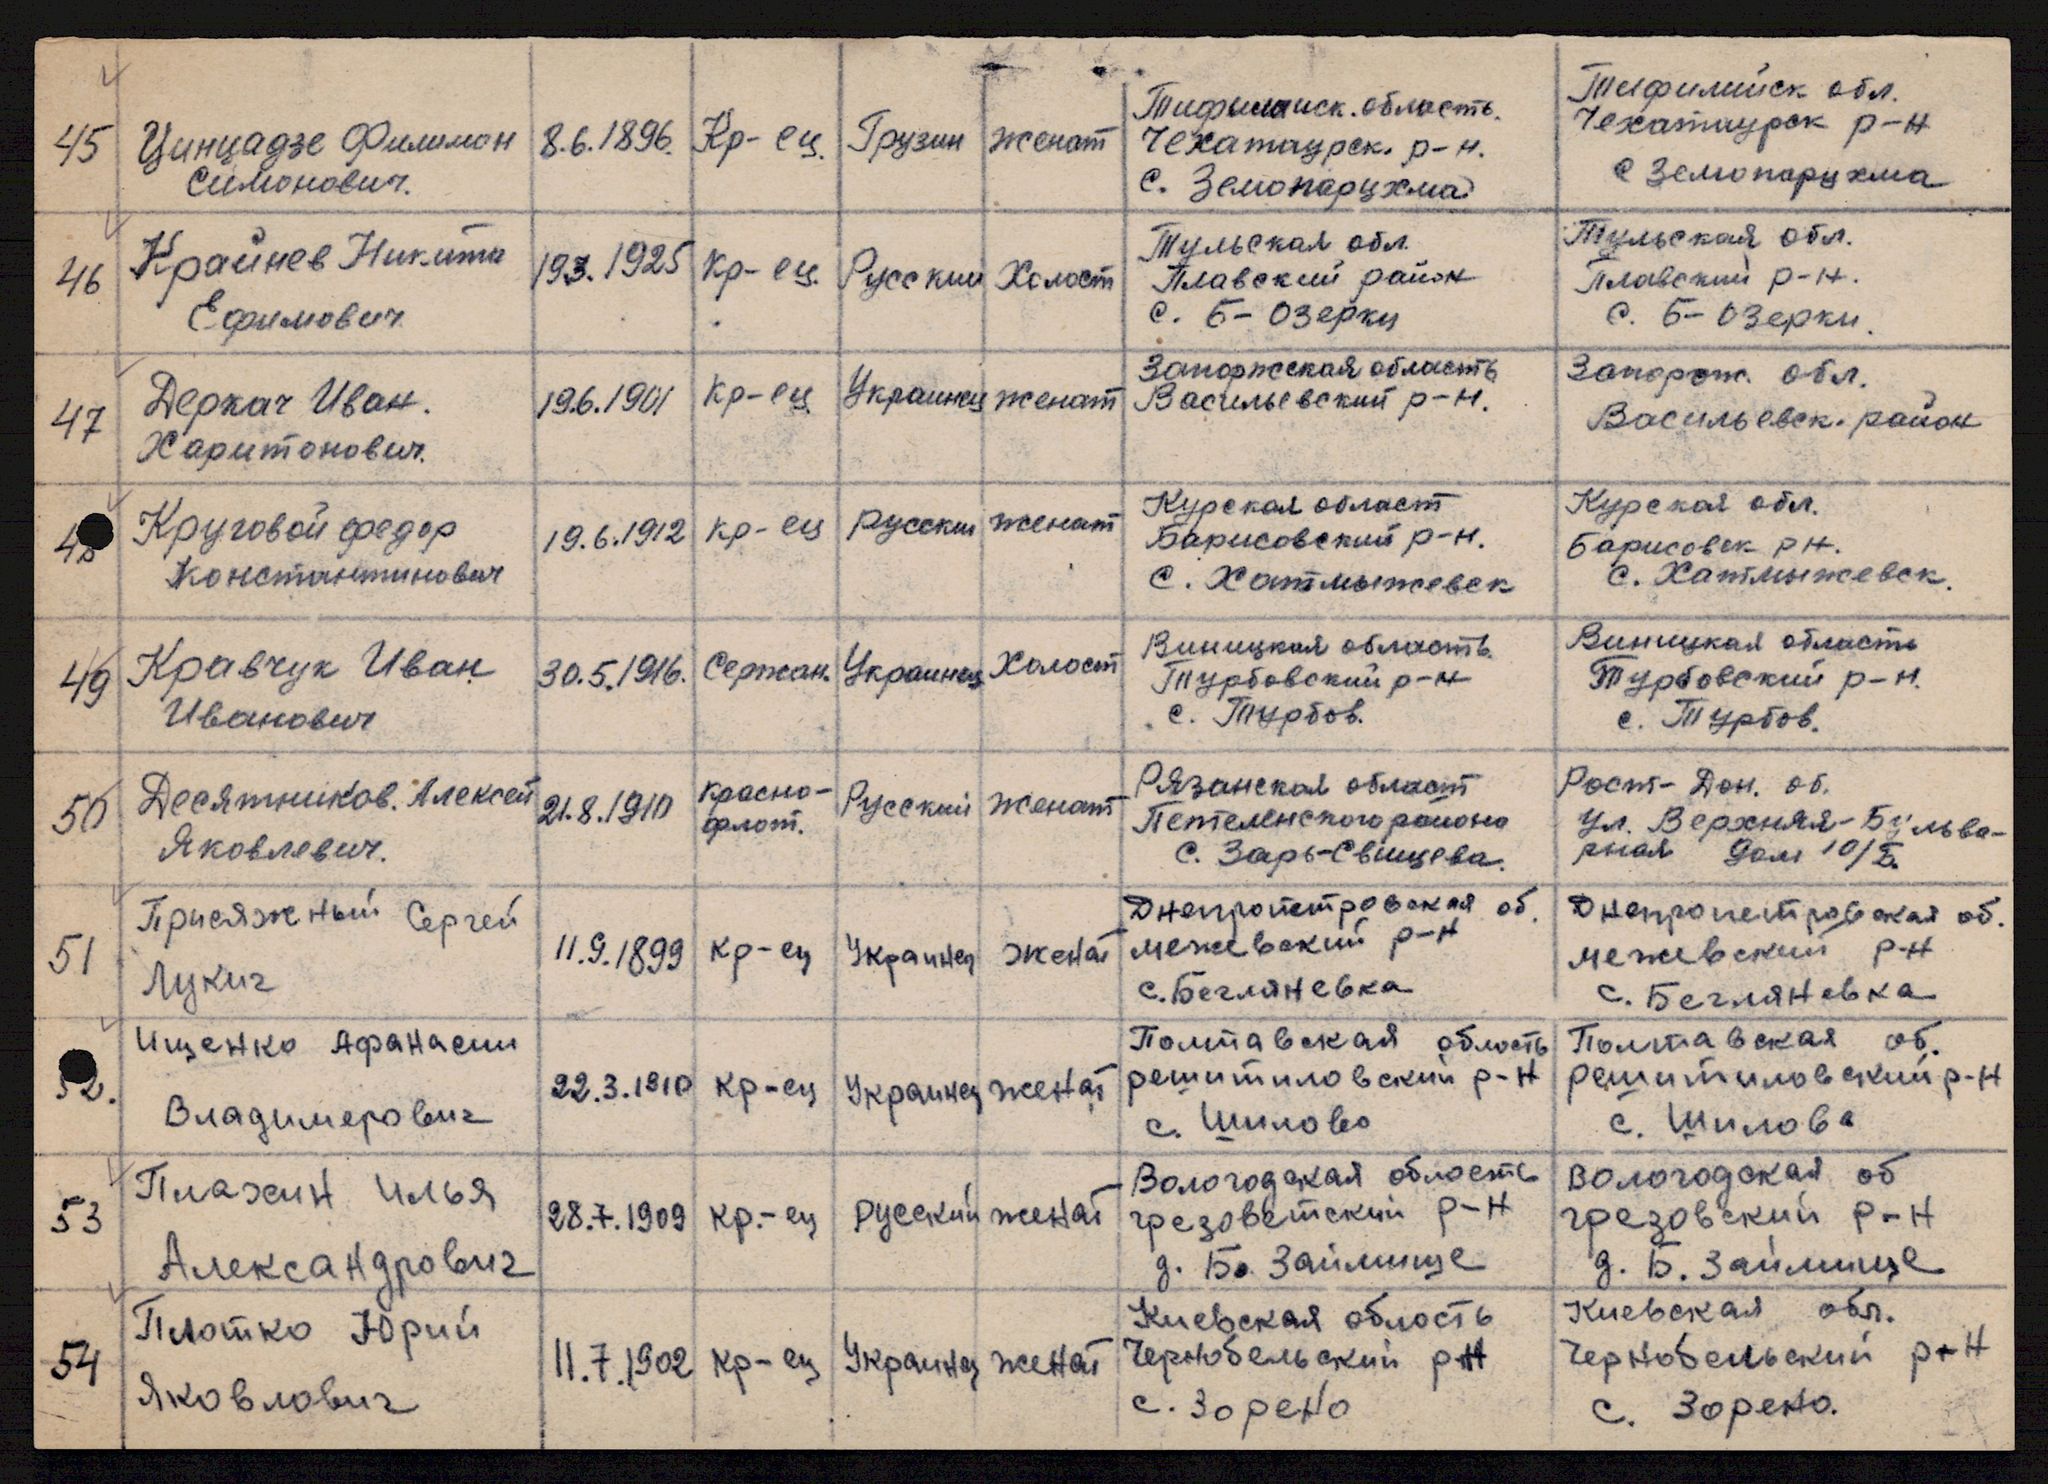 45
Цинцадзе Филимон
Симонович.
8.6.1896.
Кр-ец.
Грузин
женат
Тифлииск. область.
Чехатаурск. р-н.
С. Земопарцхма
Тифлийск обл.
Чехатаурск р-н
С Земопарцхма
46
Крайнев Никита
Ефимович
19.3.1925
Кр-ец.
Русский
Холост
Тульская обл.
Плавский район
С. Б-Озерки
Тульская обл.
Плавский р-н.
С. Б-Озерки.
47
Деркач Иван.
Харитонович.
19.6.1901
Кр-ец
Украинец
женат
Запоржская область
Васильевский р-н.
Запорож. обл.
Васильевск. район
48
Круговой федор
Константинович
19.6.1912
кр-ец
русский
женат
Курская област
Барисовский р-н.
С. Хатмыжевск
Курская обл.
Барисовск рн.
С. Хатмыжевск.
49
Кравчук Иван
Иванович
30.5.1916.
Сержан.
Украинец
Холост
Виницкая область
Турбовский р-н
с. Турбов.
Виницкая область
Турбовский р-н.
с. Турбов.
50
Десятников. Алексей
Яковлевич.
21.8.1910
красно-
флот.
Русский
женат
Рязанская област
Петеленского района
С. Зарь-Свищева.
Рост-Дон. об.
ул. Верхняя-Бульва-
рная дом 10/
51
Присяжный Сергей
Лукич
11.9.1899
кр-ец
Украинец
женат
Днепропетровская об.
межевский р-н
с. Бегляневка
Днепропетровская об.
межевский р-н
с. Бегляневка
52.
Ищенко Афанасии
Владимерович
22.3.1910
кр-ец
Украинец
женат
Полтавская область
решитиловский р-н
с. Шилово
Полтавская об.
решитиловский р-н
с. Шилова
53
Плахин Илья
Александрович
28.7.1909
кр.-ец
русский
женат
Вологодская область
грезоветский р-н
д. Б. Займище
Вологодская об
грезовский р-н
д. Б. Займище
54
Плотко Юрий
Яковлович
11.7.1902
кр-ец
Украинец
женат
Киевская область
Чернобельский р-н
с. Зорено
Киевская обл.
Чернобельский р-н
с. Зорено.